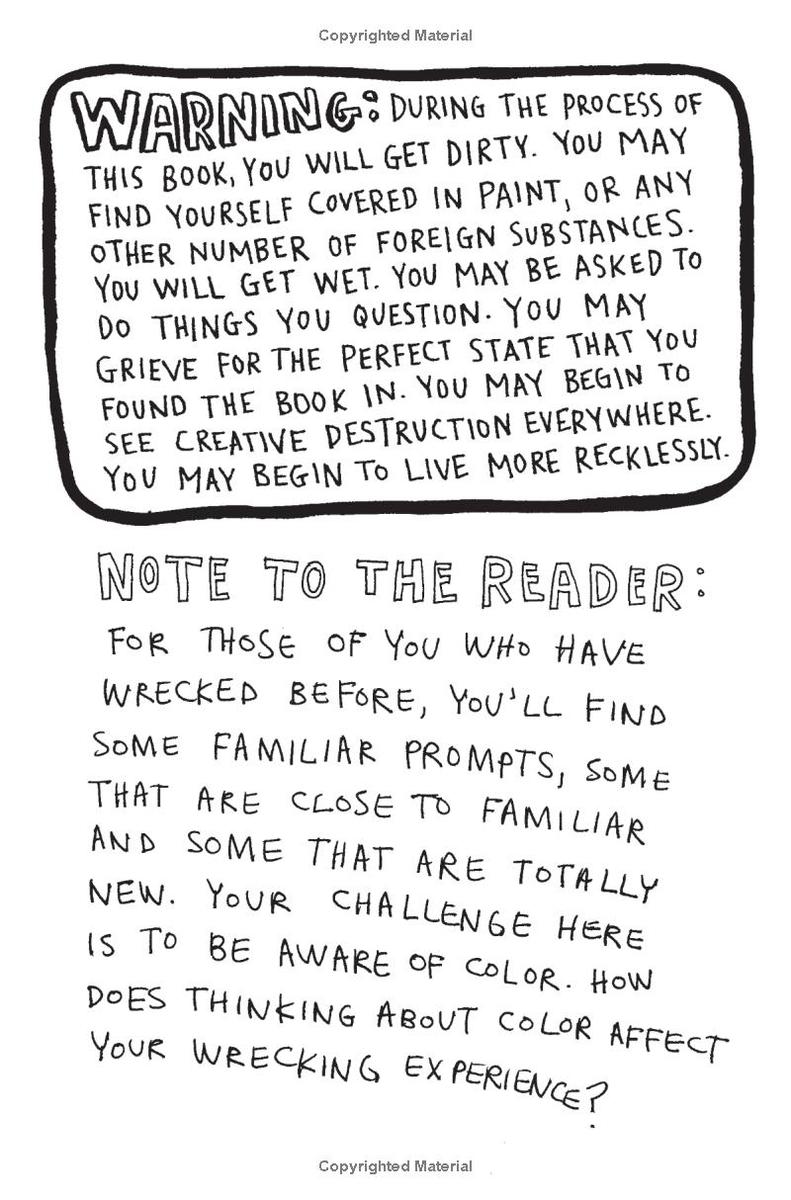 Copyrighted Material
WARNING: DURING THE PROCESS OF
THIS BOOK, YOU WILL GET DIRTY. YOU MAY
FIND YOURSELF COVERED IN PAINT, OR ANY
OTHER NUMBER OF FOREIGN SUBSTANCES.
YOU WILL GET WET. YOU MAY BE ASKED TO
DO THINGS YOU QUESTION. YOU MAY
GRIEVE FOR THE PERFECT STATE THAT YOU
FOUND THE BOOK IN. YOU MAY BEGIN TO
SEE CREATIVE DESTRUCTION EVERYWHERE.
YOU MAY BEGIN TO LIVE MORE RECKLESSLY.
NOTE TO THE READER:
FOR THOSE OF YOU WHO HAVE
WRECKED BEFORE, YOU'LL FIND
SOME FAMILIAR PROMPTS, SOME
THAT ARE CLOSE TO FAMILIAR
AND SOME THAT ARE TOTALLY
NEW. YOUR CHALLENGE HERE
IS TO BE AWARE OF COLOR. HOW
DOES THINKING ABOUT COLOR AFFECT
YOUR WRECKING EXPERIENCE?
Copyrighted Material